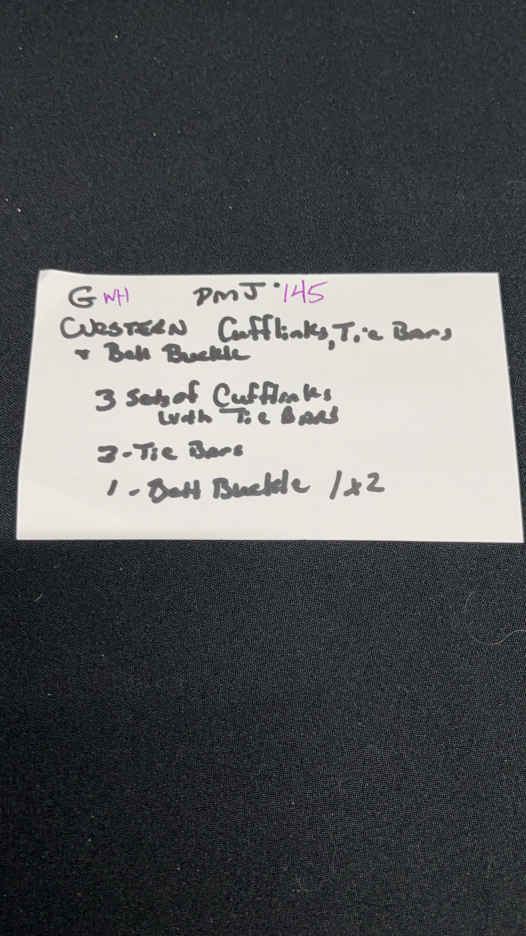 G WH PMJ • 145
WESTERN Cufflinks, Tie Bars
+ Belt Buckle
3 Sets of Cufflinks
with Tie BARS
3 - Tie Bars
1 - Belt Buckle 1x2